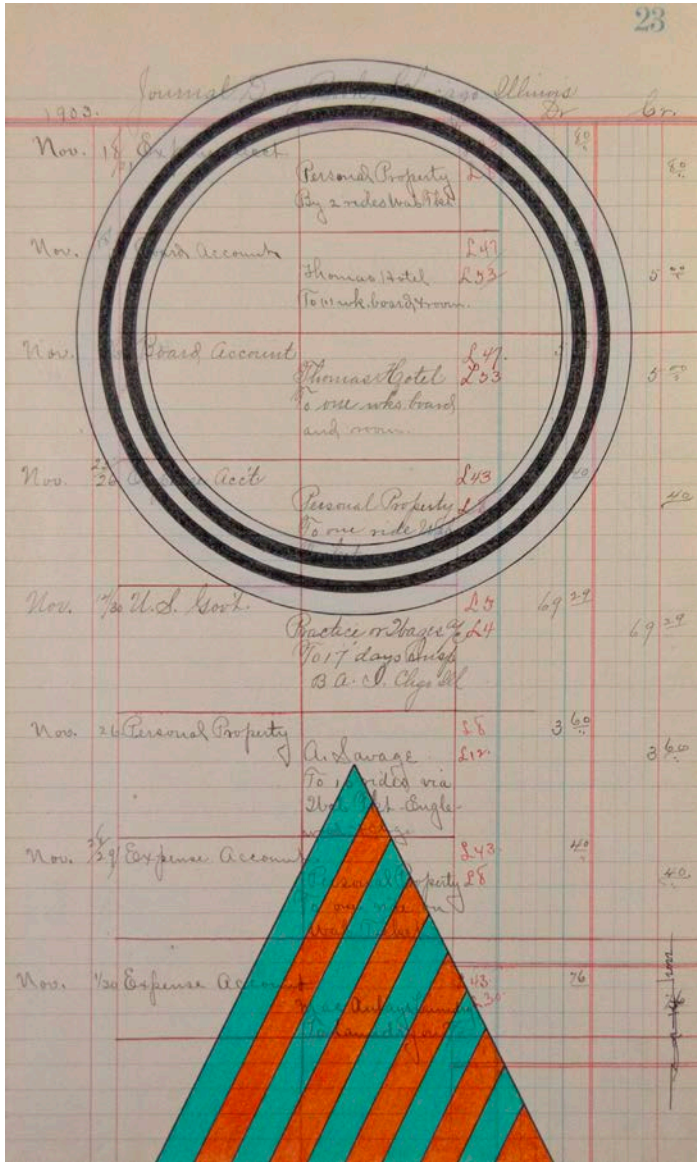 23
Journal, Chicago Illinois
1903. Dr Cr.
Nov. 18/21 Expense Acct 80
Personal Property L8 80
By 2 rides Wab Tkt
Nov. Board Account L47
Thomas Hotel L53 5 00
To 1 wk. board & room.
Nov. Board Account L47. 5
Thomas Hotel L53 5 00
To one wks. board
and room.
Nov. 25/26 Expense Acc't L43 40
Personal Property L8 40
To one ride Wab
Nov. U.S. Gov't. L3 69 29
Practice or Wages a/c L4 69 29
To 17 days
B.A.I. Chgo Ill
Nov. 26 Personal Property L8 3 60
A. Savage L12 3 60
To rides via
Wab Tkt. Engle-
wood
Nov. 28/29 Expense Account. L43 40
Personal Property L8 40
To one ride on
Wab Ticket
Nov. 1/30 Expense Account L43 76
L30
To laundry
2022